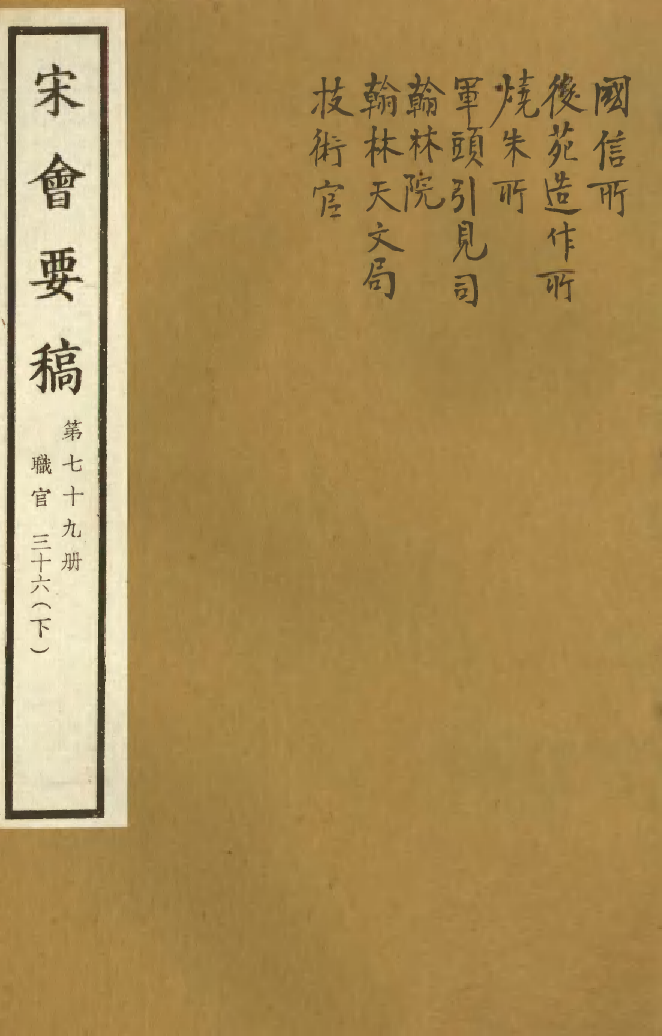 國信所
後苑造作所
燒朱所
軍頭引見司
翰林院
翰林天文局
技術官
宋會要稿
第七十九册
職官 三十六(下)